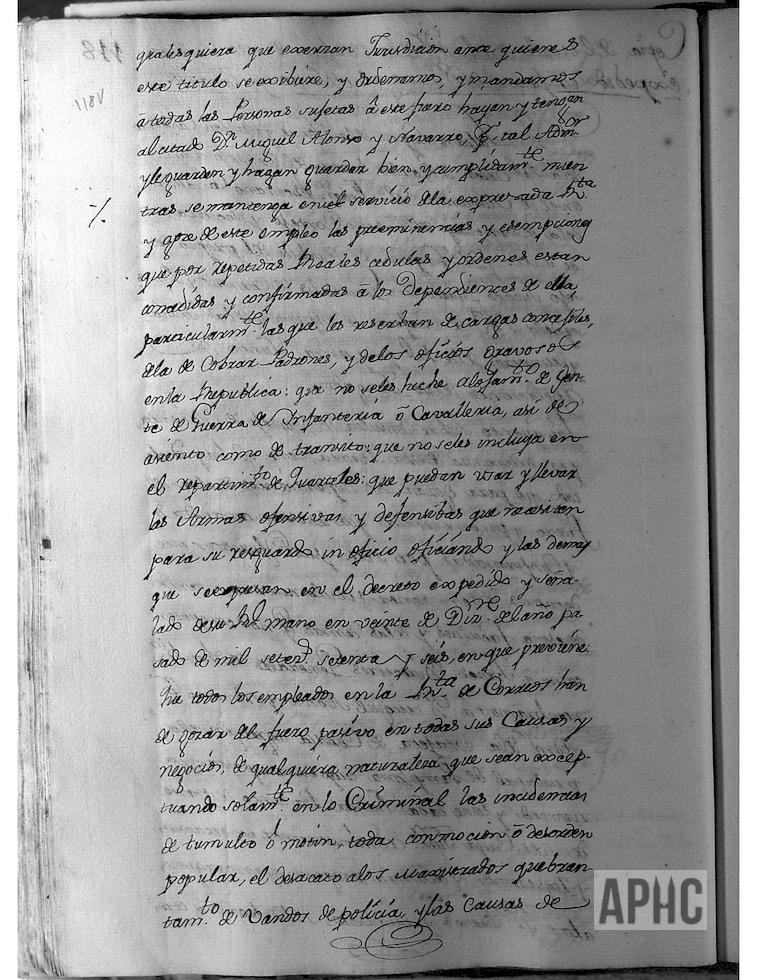 118
1811
qualesquiera que exerzan Jurisdicion ante quienes
este titulo se exibiere, y ordenamos, y mandamos
a todas las Personas sujetas â este fuero hayan y tengan
al citado Dn. Miguel Alonso y Navarro, tal Admor.
y le guarden y hagan guardar bien y cumplidamte. mien
tras se mantenga en el servicio de la expresada Rta.
y goze de este empleo las preeminencias y esempciones
que por repetidas Reales cedulas y ordenes estan
concedidas y confirmadas â los Dependientes de ella,
particularmte. las que les reserban de cargas concejiles,
de la de Cobrar Padrones, y de los oficios gravosos
en la Republica: que no seles heche alojamto. de Gen-
te de Guerra de Infanteria ô Cavalleria, asi de
asiento como de transito: que no seles incluya en
el repartimto. de Quarteles: que puedan usar y llevar
las Armas ofensivas y defensibas que necesiten
para su resguardo in oficio oficiando y las demas
que se expresan en el decreto expedido y seña-
lado de su Rl. mano en veinte de Dizre. del año pa
sado de mil setezs. setenta y seis, en que previene
que todos los empleados en la Rta. de Correos han
de gozar del fuero pasivo en todas sus Causas y
negocios, de qualquiera naturaleza que sean excep-
tuando solamte. en lo Criminal las incidencias
de tumulto ô motin, toda conmocion ô desorden
popular, el desacato a los Magistrados quebran
tamto. de Vandos de policia, y las Causas de
APHC